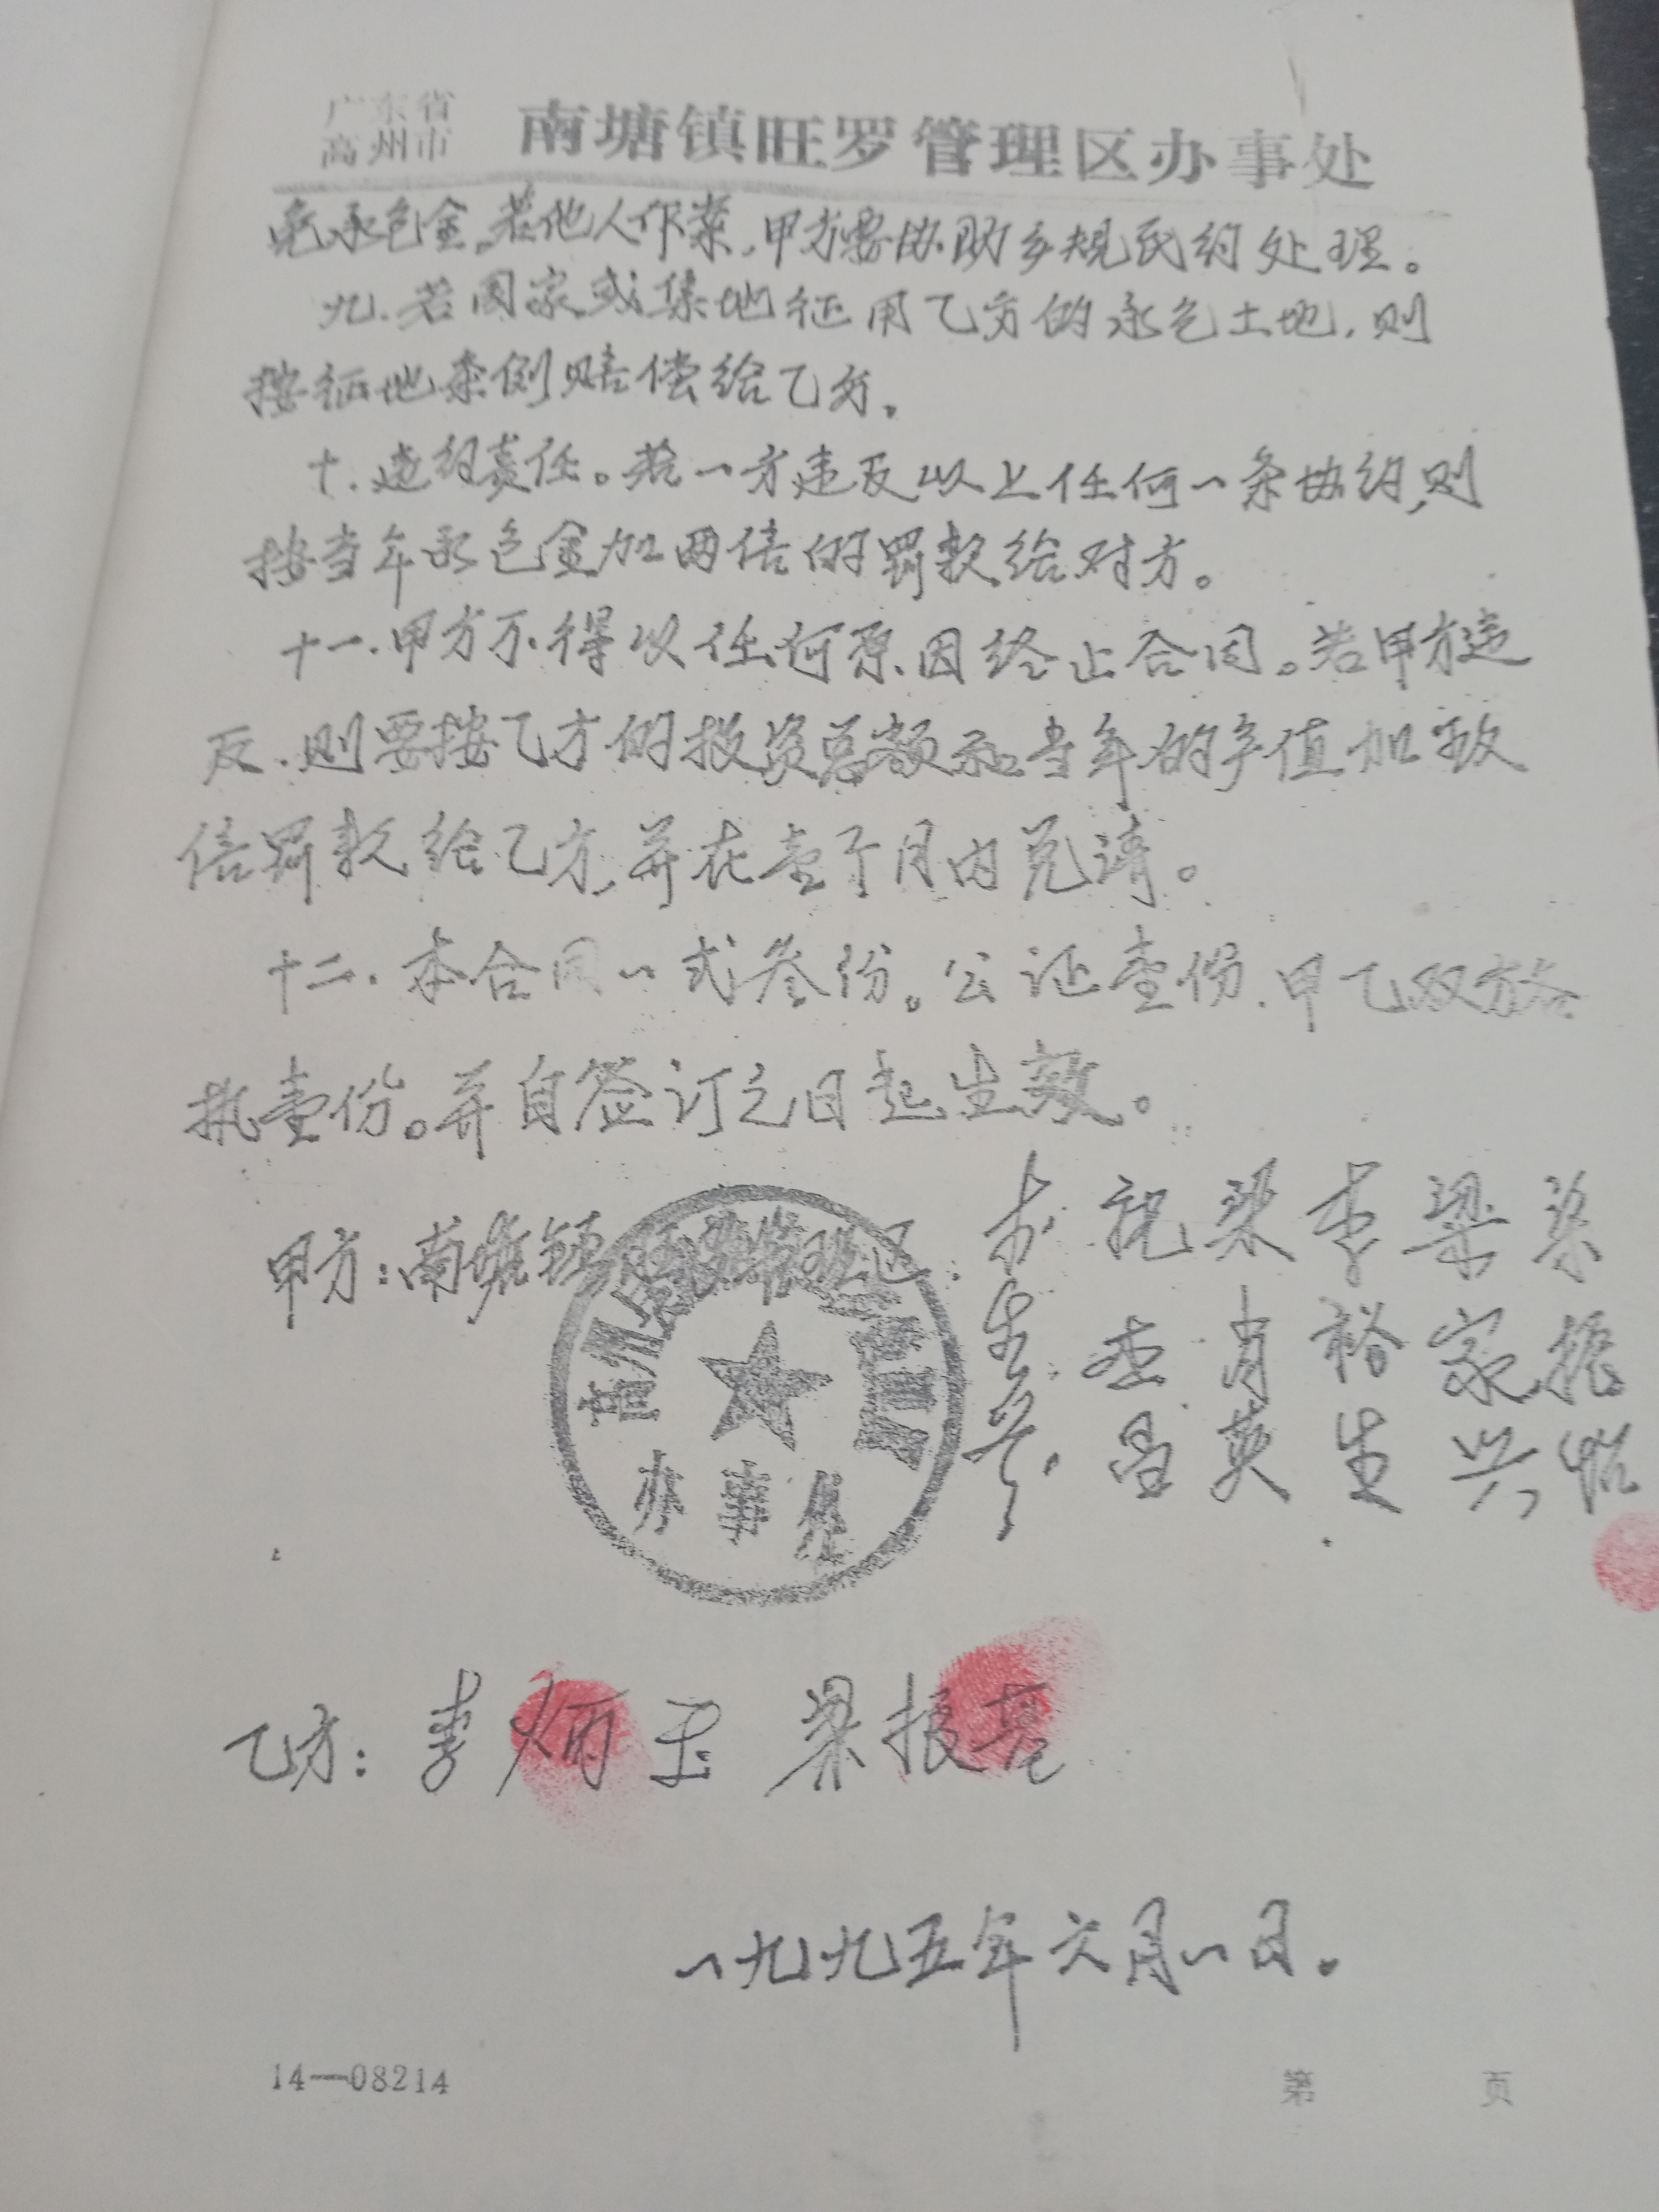 广东省
高州市
南塘镇旺罗管理区办事处
承包金。若他人作案,甲方要协助乡规民约处理。
九.若国家或集地征用乙方的承包土地,则
按征地条例赔偿给乙方。
十.违约责任。若一方违反以上任何一条协约,则
按当年承包金加两倍的罚款给对方。
十一.甲方不得以任何原因终止合同。若甲方违
反.则要按乙方的投资总额和当年的产值加
倍罚款给乙方,并在壹个月内兑清。
十二.本合同一式叁份。公证壹份.甲乙双方各
执壹份。并自签订之日起生效。
甲方:南塘镇旺罗管理区.
办事处
梁肖英
李裕生
梁家兴
乙方:李炳玉 梁振
一九九五年六月一日.
14—08214
第 页